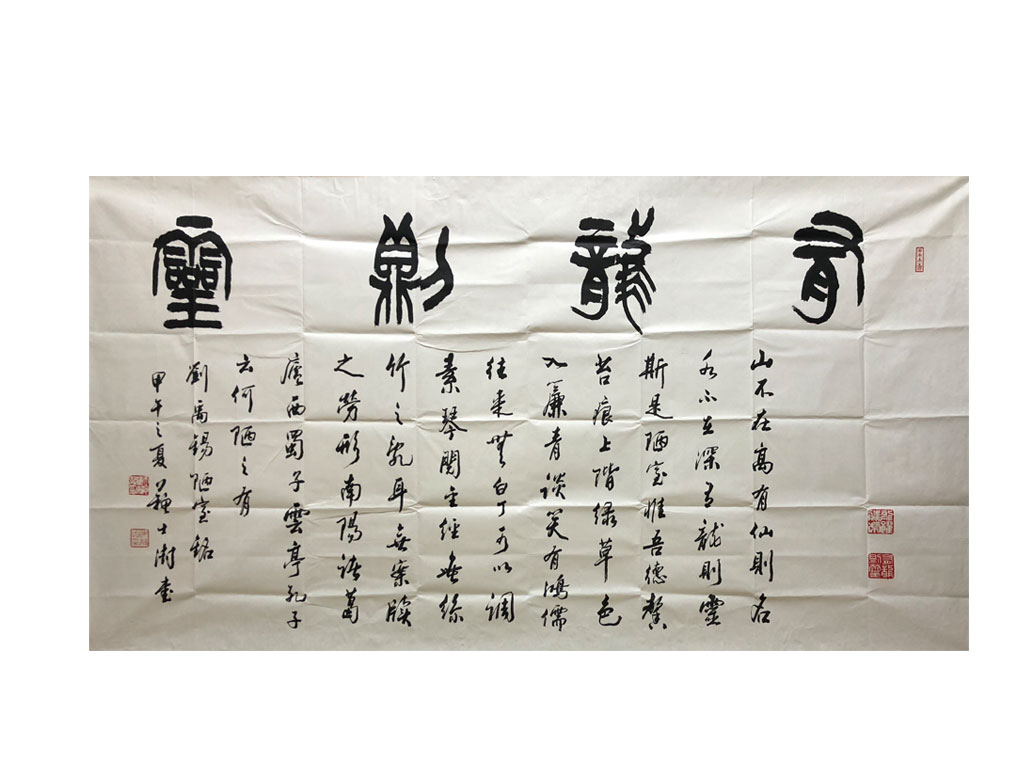 有龍則靈
山不在高有仙則名
水不在深有龍則靈
斯是陋室惟吾德馨
苔痕上階緑草色
入簾青談笑有鴻儒
往来無白丁可以調
素琴閱金經無絲
竹之亂耳無案牘
之勞形南陽諸葛
廬西蜀子雲亭孔子
云何陋之有
劉禹錫陋室銘
甲午之夏蘇士澍書